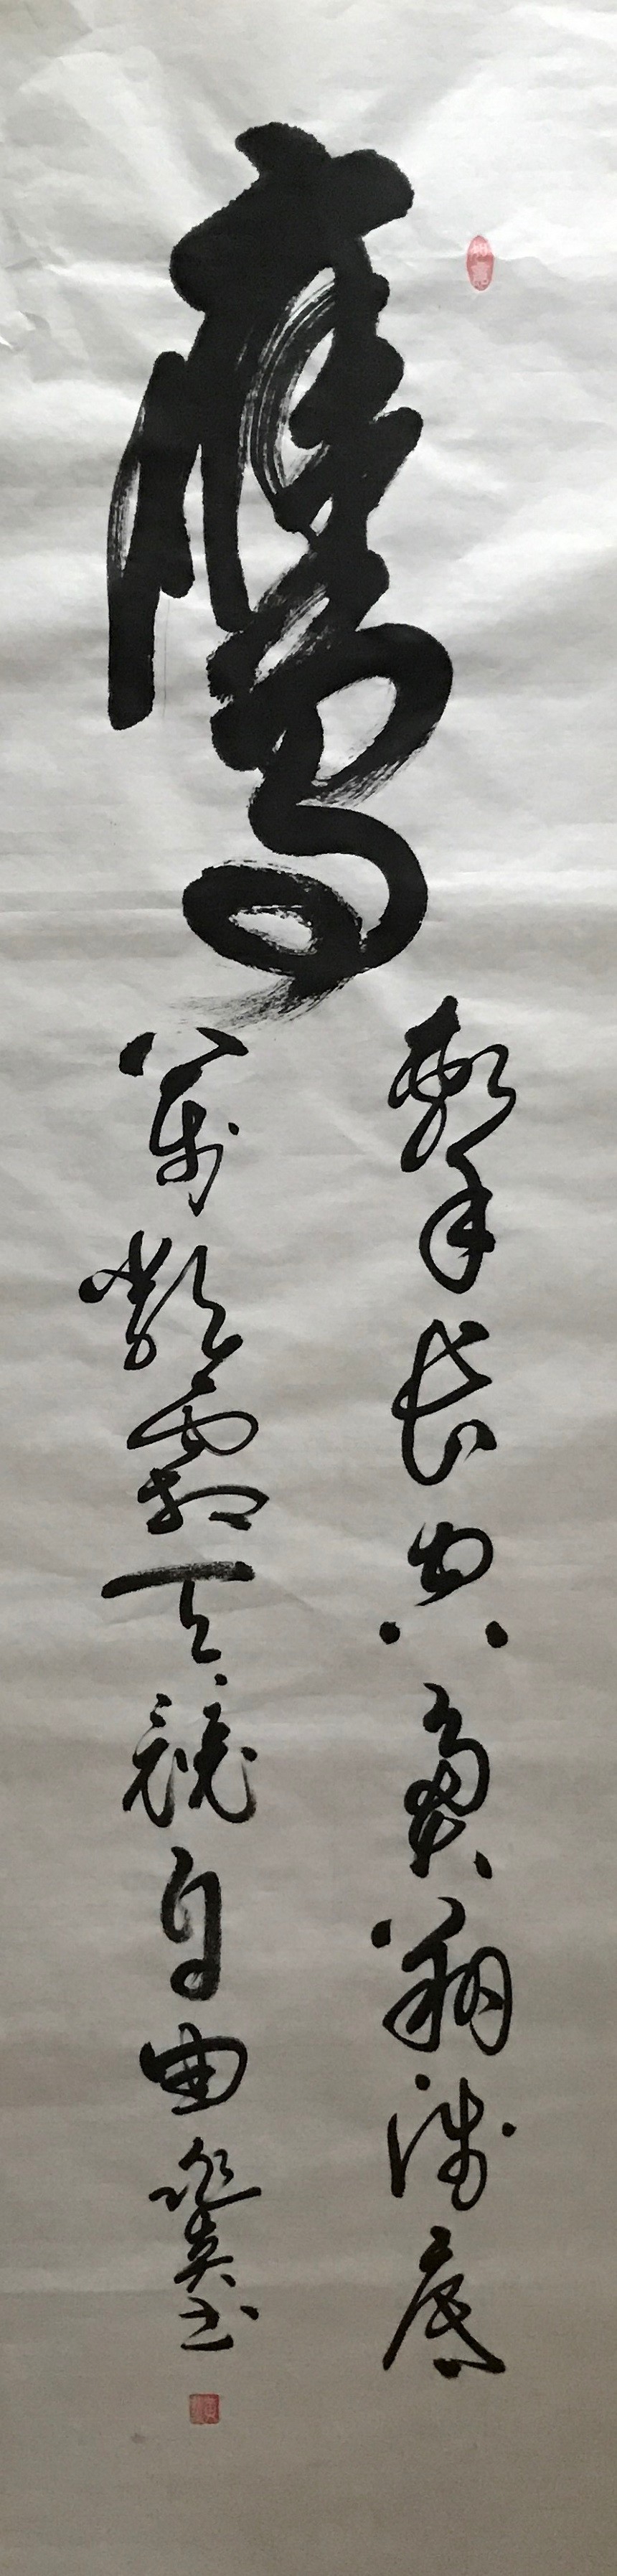 鷹
擊長空魚翔淺底
萬類霜天競自由
書